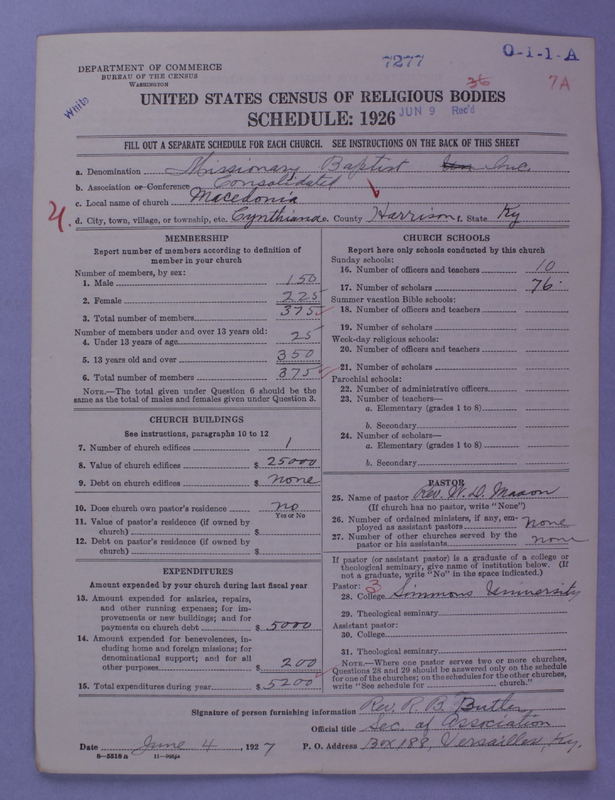 7277
0-1-1-A
DEPARTMENT OF COMMERCE
BUREAU OF THE CENSUS
WASHINGTON
White
36
7A
UNITED STATES CENSUS OF RELIGIOUS BODIES
SCHEDULE: 1926
JUN 9 Rec'd
FILL OUT A SEPARATE SCHEDULE FOR EACH CHURCH. SEE INSTRUCTIONS ON THE BACK OF THIS SHEET
a. Denomination Missionary Baptist Inc.
b. Association or Conference Consolidated
c. Local name of church Macedonia
4. d. City, town, village, or township, etc. Cynthiana e. County Harrison f. State Ky
MEMBERSHIP
Report number of members according to definition of
member in your church
Number of members, by sex:
1. Male 150
2. Female 225
3. Total number of members 375
Number of members under and over 13 years old:
4. Under 13 years of age 25
5. 13 years old and over 350
6. Total number of members 375
NOTE.—The total given under Question 6 should be the
same as the total of males and females given under Question 3.
CHURCH BUILDINGS
See instructions, paragraphs 10 to 12
7. Number of church edifices 1
8. Value of church edifices $ 25000
9. Debt on church edifices $ none
10. Does church own pastor's residence? no
Yes or No
11. Value of pastor's residence (if owned by
church) $
12. Debt on pastor's residence (if owned by
church) $
EXPENDITURES
Amount expended by your church during last fiscal year
13. Amount expended for salaries, repairs,
and other running expenses; for im-
provements or new buildings; and for
payments on church debt $ 5000
14. Amount expended for benevolences, in-
cluding home and foreign missions; for
denominational support; and for all
other purposes $ 200
15. Total expenditures during year $ 5200
CHURCH SCHOOLS
Report here only schools conducted by this church
Sunday schools:
16. Number of officers and teachers 10
17. Number of scholars 76
Summer vacation Bible schools:
18. Number of officers and teachers
19. Number of scholars
Week-day religious schools:
20. Number of officers and teachers
21. Number of scholars
Parochial schools:
22. Number of administrative officers
23. Number of teachers—
a. Elementary (grades 1 to 8)
b. Secondary
24. Number of scholars—
a. Elementary (grades 1 to 8)
b. Secondary
PASTOR
25. Name of pastor Rev. W. D. Maxon
(If church has no pastor, write "None")
26. Number of ordained ministers, if any, em-
ployed as assistant pastors none
27. Number of other churches served by the
pastor or his assistants none
If pastor (or assistant pastor) is a graduate of a college or
theological seminary, give name of institution below. (If
not a graduate, write "No" in the space indicated.)
Pastor: 3
28. College Simmons University
29. Theological seminary
Assistant pastor:
30. College
31. Theological seminary
NOTE.—Where one pastor serves two or more churches,
Questions 28 and 29 should be answered only on the schedule
for one of the churches; on the schedules for the other churches,
write "See schedule for church."
Signature of person furnishing information Rev. R. B. Butler
Official title Sec. of Association
Date June 4, 1927 P. O. Address Box 188, Versailles, Ky.
8—5518 a